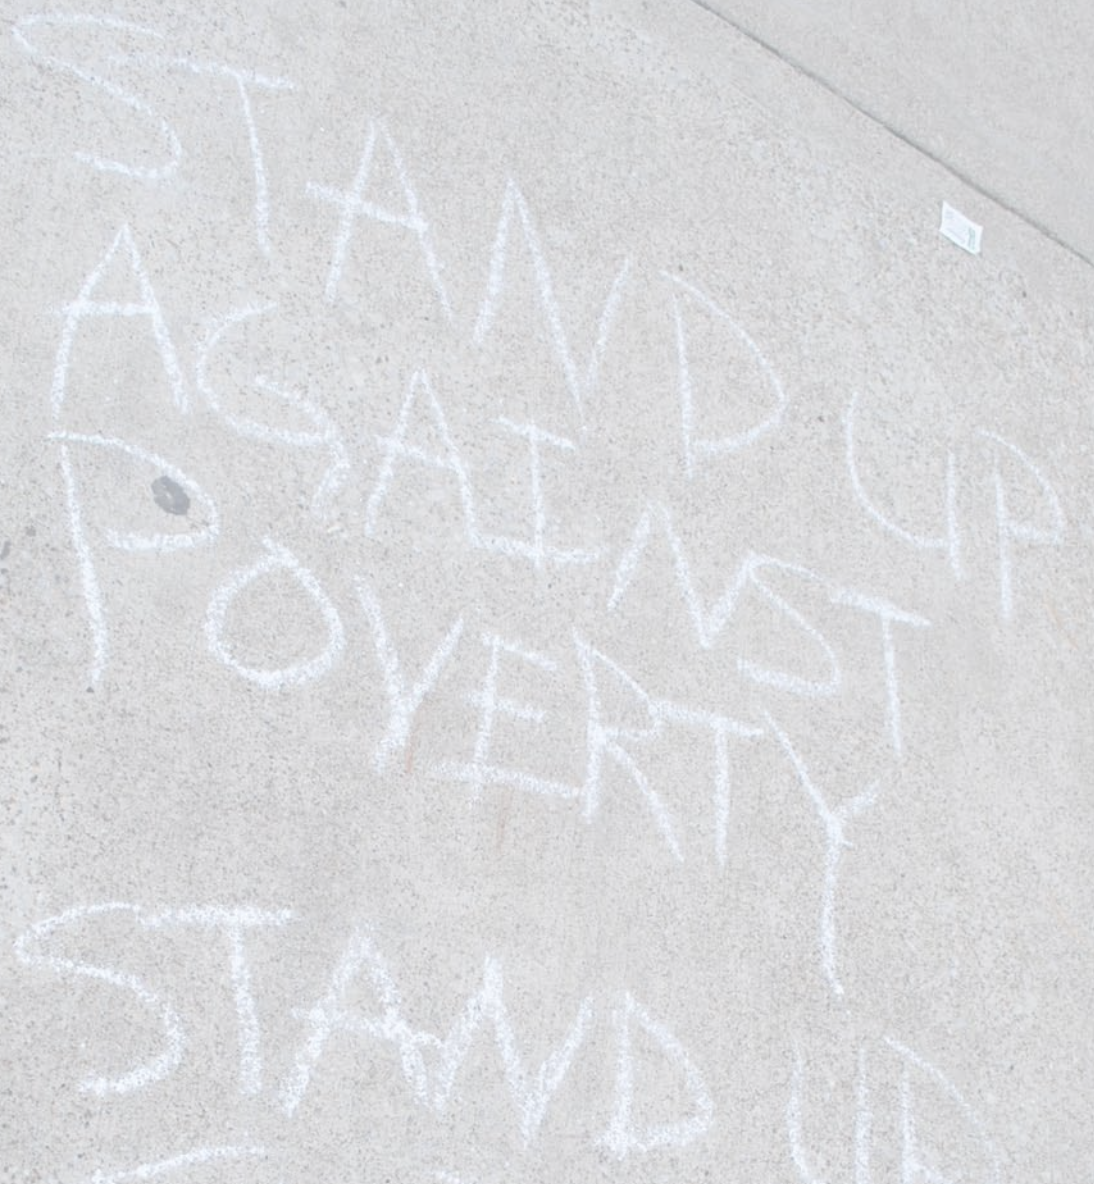 STAND UP
AGAINST
POVERTY
STAND UP